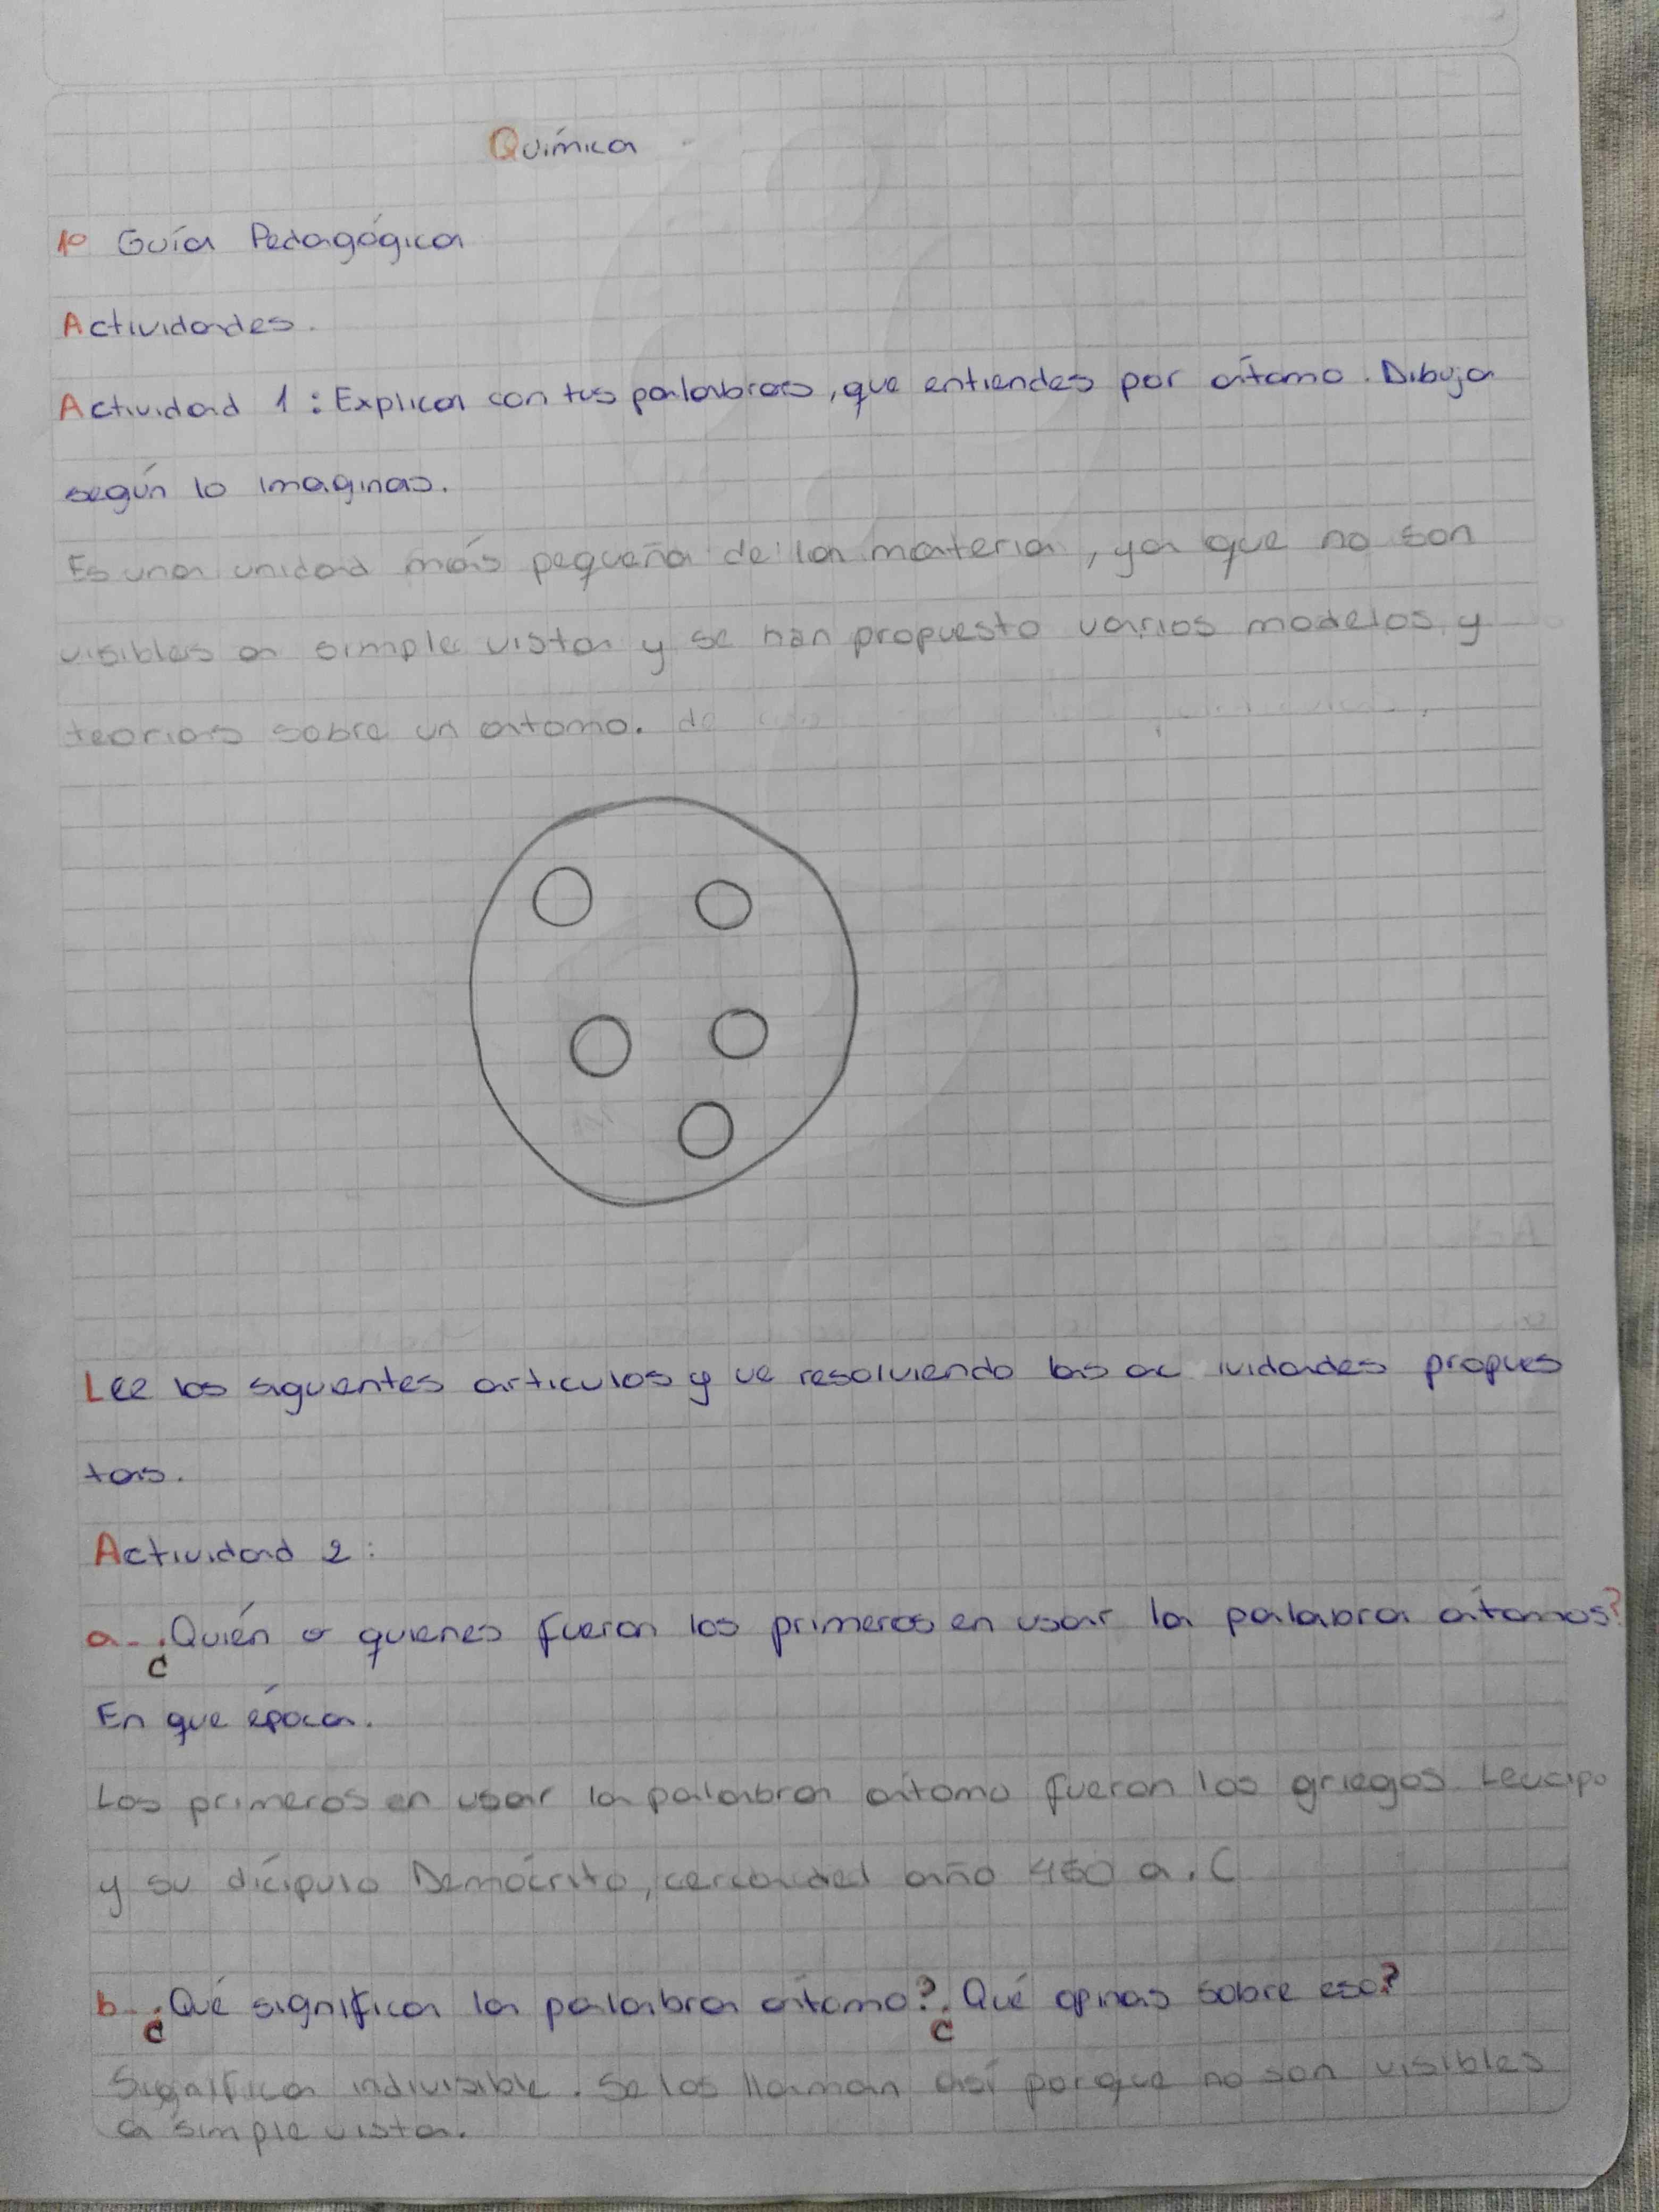 Química
1º Guía Pedagógica
Actividades.
Actividad 1: Explica con tus palabras, que entiendes por átomo. Dibuja
según lo imaginas.
Es una unidad más pequeña de la materia, ya que no son
visibles a simple vista y se han propuesto varios modelos y
teorias sobre un atomo. de
Lee los siguientes articulos y ve resolviendo las ac ividades propues
tas.
Actividad 2:
a-. ¿Quién o quienes fueron los primeros en usar la palabra átomos?
En que época.
Los primeros en usar la palabra átomo fueron los griegos Leucipo
y su dícipulo Demócrito, cerca del año 450 a.C
b-. ¿Qué significa la palabra átomo? ¿Qué opinas sobre eso?
Significa indivisible. Se los llaman así porque no son visibles
a simple vista.